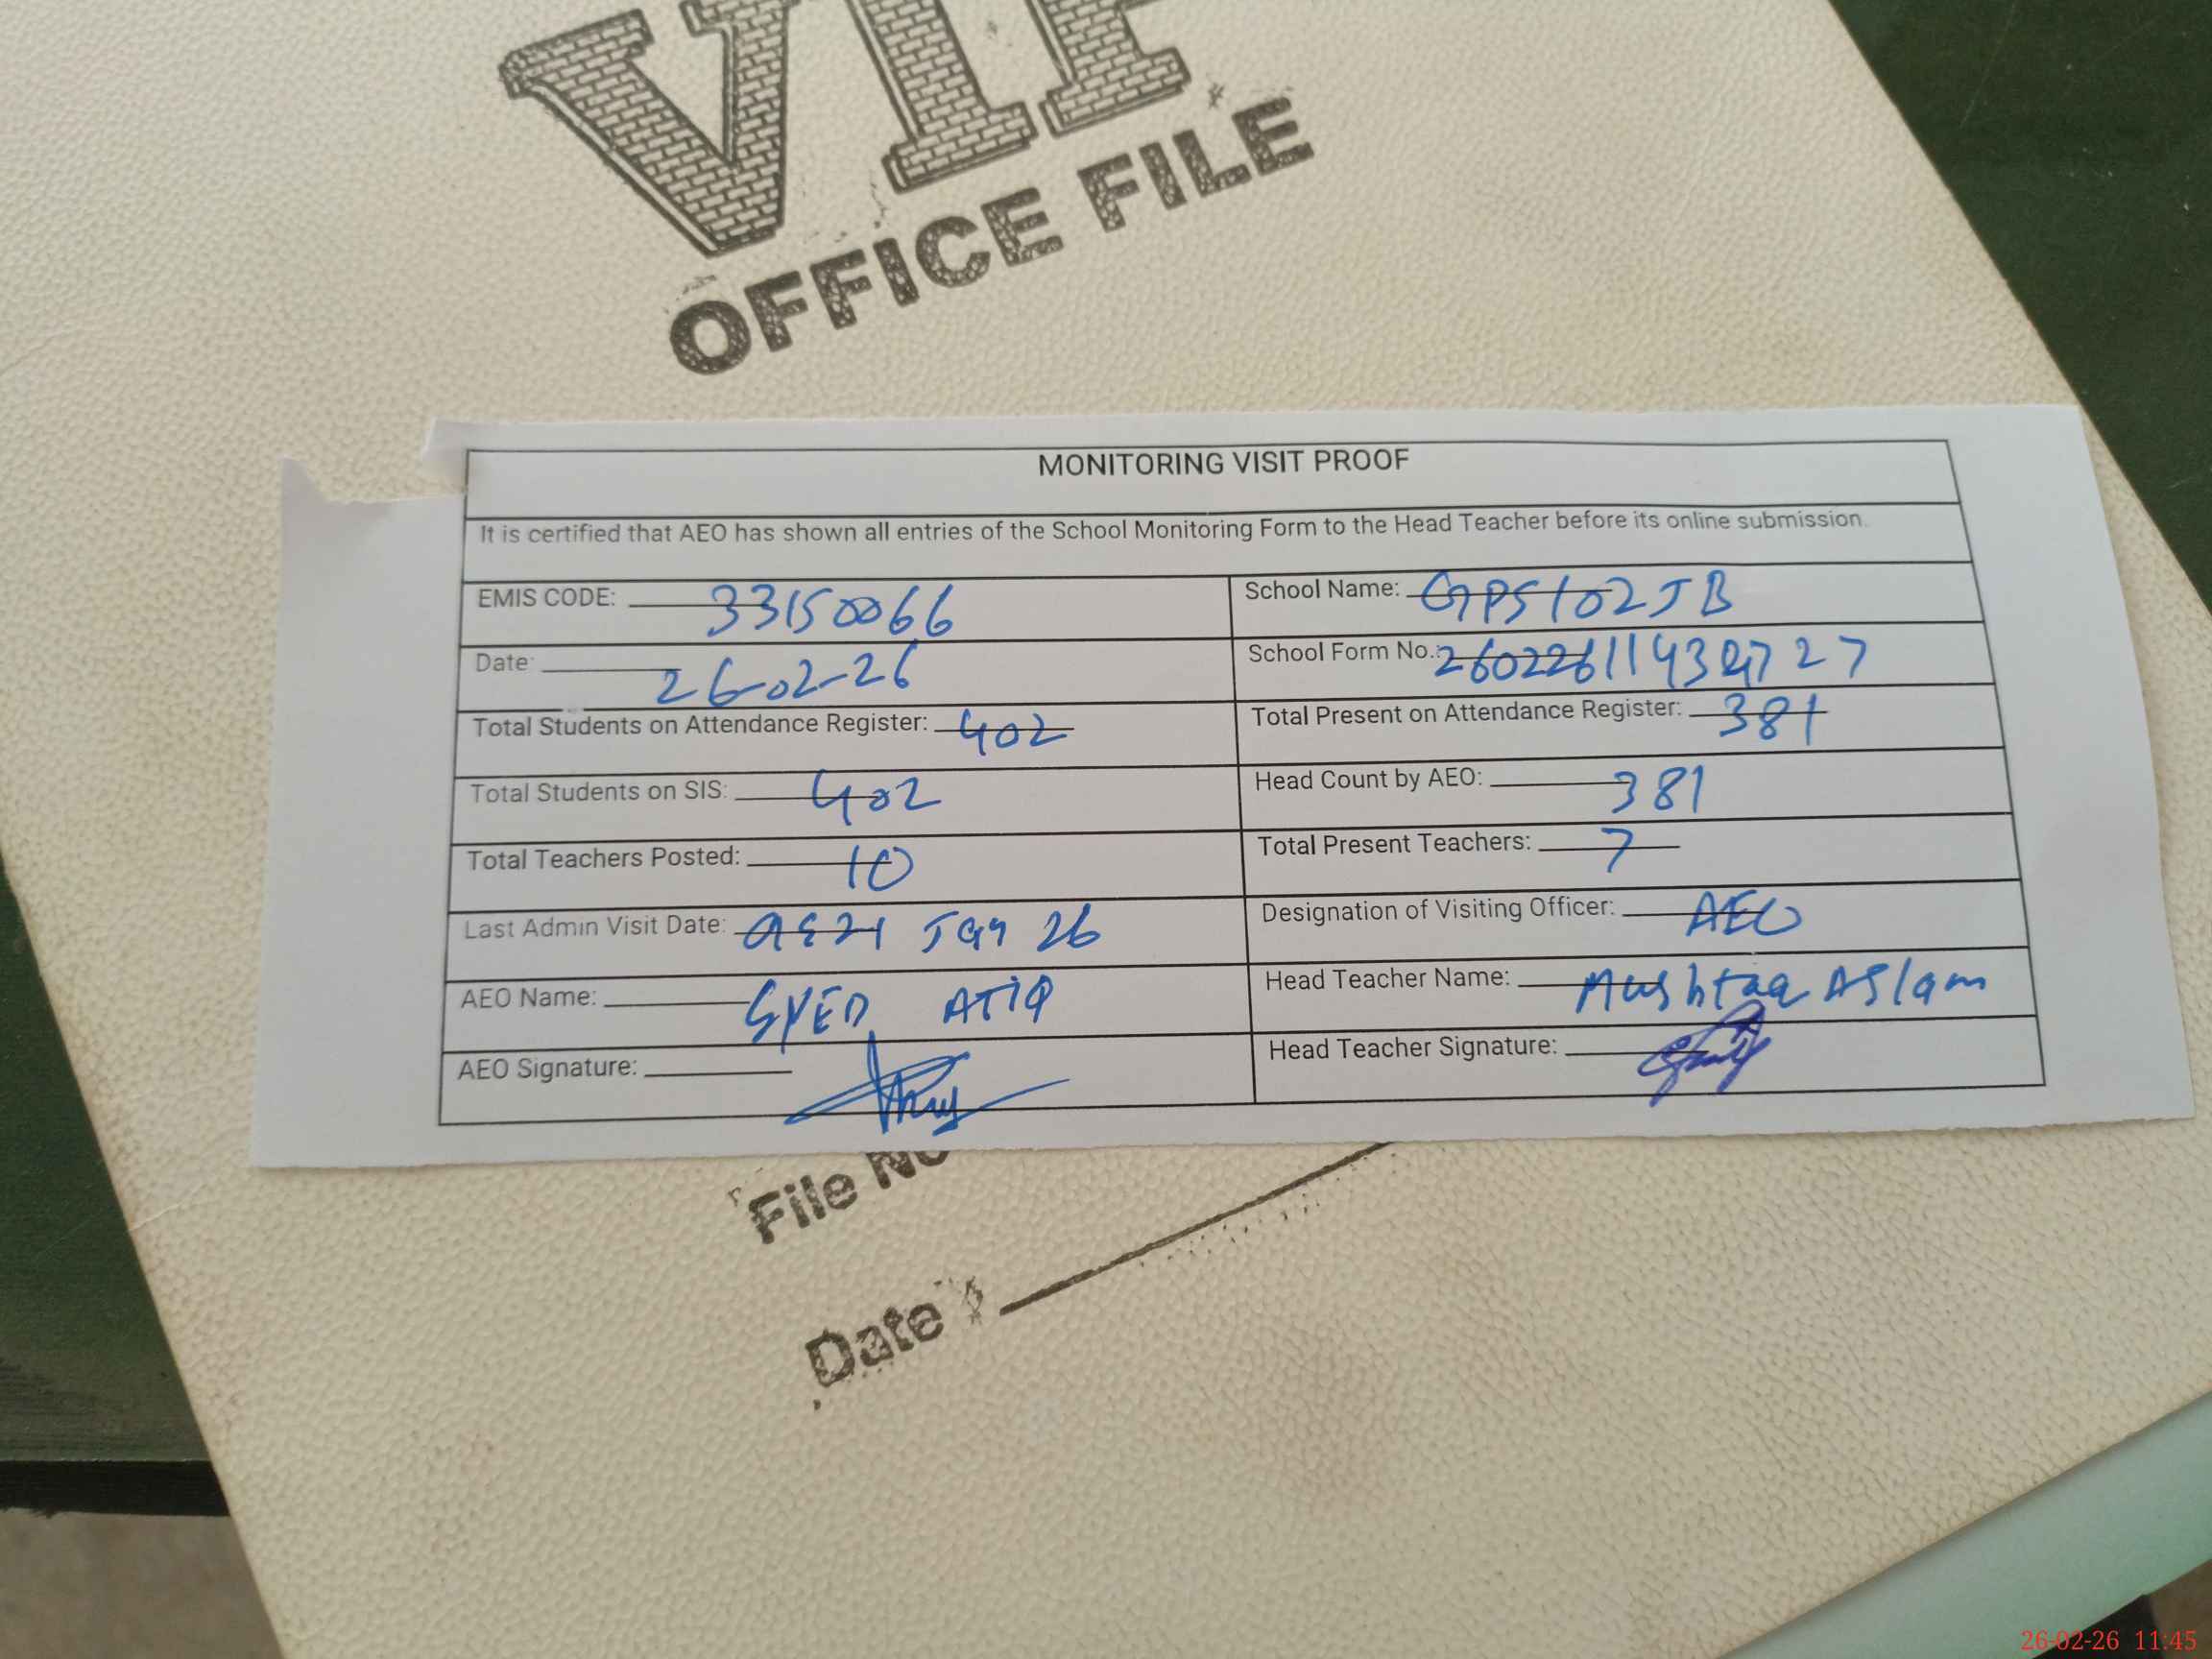 VIP
OFFICE FILE
MONITORING VISIT PROOF
It is certified that AEO has shown all entries of the School Monitoring Form to the Head Teacher before its online submission.
EMIS CODE: 33150066
School Name: GPS 102 JB
Date: 26-02-26
School Form No.:
Total Students on Attendance Register: 402
Total Present on Attendance Register: 381
Total Students on SIS: 402
Head Count by AEO: 381
Total Teachers Posted: 10
Total Present Teachers: 7
Last Admin Visit Date: 26
Designation of Visiting Officer: AEO
AEO Name: SYED ATIQ
Head Teacher Name: Mushtaq Aslam
AEO Signature:
Head Teacher Signature:
File No
Date :
26-02-26 11:45